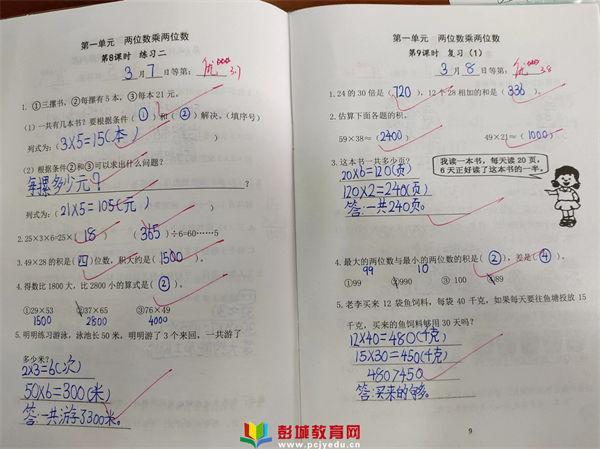 第一单元 两位数乘两位数
第8课时 练习二
3月7日等第: 优 3.7
1. ①三摞书,②每摞有5本,③每本21元。
(1)一共有几本书?要根据条件(①)和(②)解决。(填序号)
列式为:3×5=15(本)
(2)根据条件②和③可以求出什么问题?
每摞多少元?
列式为:21×5=105(元)
2. 25×3×6=25×(18) (365)÷6=60……5
3. 49×28的积是(四)位数,积大约是(1500)。
4. 得数比1800大,比2800小的算式是(②)
①29×53 ②37×65 ③76×49
1500 2800 4000
5. 明明练习游泳,泳池长50米,明明游了3个来回,一共游了
多少米?
2×3=6(次)
50×6=300(米)
答:一共游了300米。
第一单元 两位数乘两位数
第9课时 复习(1)
3月8日等第: 优 3.8
1. 24的30倍是(720),12个28相加的和是(336)。
2. 估算下面各题的积。
59×38≈(2400) 49×21≈(1000)
3. 这本书一共多少页?
我读一本书,每天读20页,
6天正好读了这本书的一半。
20×6=120(页)
120×2=240(页)
答:一共240页。
4. 最大的两位数与最小的两位数的积是(②),差是(④)。
99 10
①99 ②990 ③100 ④89
5. 李老买来12袋鱼饲料,每袋40千克,如果每天要往鱼塘投放15
千克,买来的鱼饲料够用30天吗?
12×40=480(千克)
15×30=450(千克)
480>450
答:买来的够。
9
彭城教育网
www.pcjyedu.cn